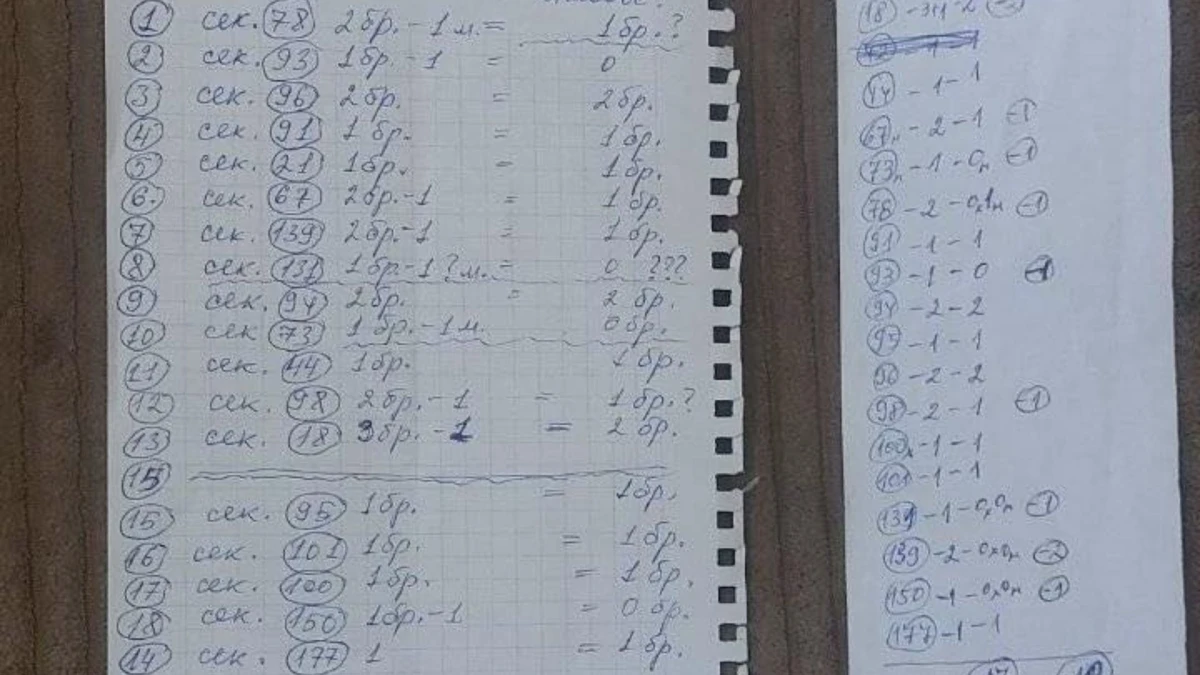 1 сек. 78 2бр. - 1м. = 1бр.?
2 сек. 93 1бр. - 1 = 0
3 сек. 96 2бр. = 2бр.
4 сек. 91 1бр. = 1бр.
5 сек. 21 1бр. = 1бр.
6. сек. 67 2бр. - 1 = 1бр.
7 сек. 139 2бр. - 1 = 1бр.
8 сек. 131 1бр. - 1?м. = 0 ???
9 сек. 94 2бр. = 2бр.
10 сек 73 1бр. - 1м. 0бр.
11 сек. 44 1бр. 1бр.
12 сек. 98 2бр. - 1 = 1бр.?
13 сек. 18 3бр. - 1 = 2бр.
15
15 сек. 95 1бр. = 1бр.
16 сек. 101 1бр. = 1бр.
17 сек. 100 1бр. = 1бр.
18 сек. 150 1бр. - 1 = 0бр.
14 сек. 177 1 = 1бр.
18 - 2
44 - 1 - 1
67 - 2 - 1 -1
73 - 1 - 0 -1
78 - 2 - -1
91 - 1 - 1
93 - 1 - 0 -1
94 - 2 - 2
95 - 1 - 1
96 - 2 - 2
98 - 2 - 1 -1
100 - 1 - 1
101 - 1 - 1
131 - 1 - -1
139 - 2 - -2
150 - 1 - -1
177 - 1 - 1